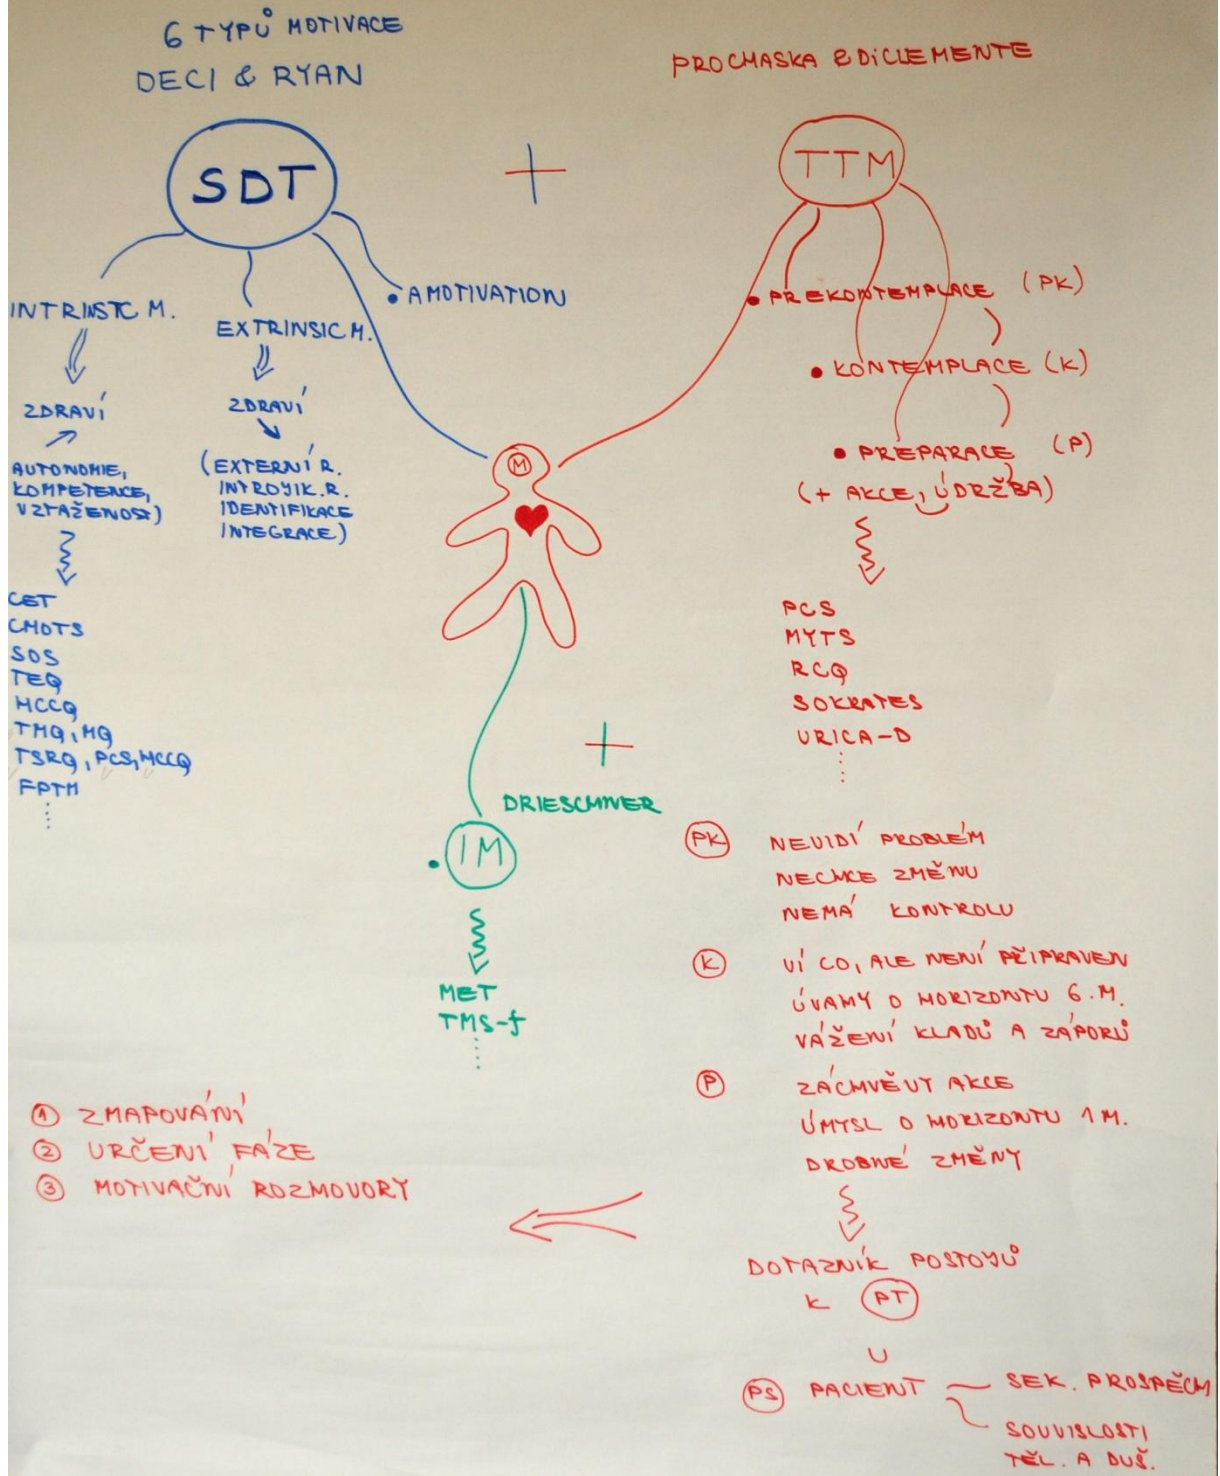 6 TYPŮ MOTIVACE
DECI & RYAN
SDT
INTRINSTC M.
ZDRAVÍ
AUTONOMIE,
KOMPETENCE,
VZTAŽENOST)
CET
CMOTS
SOS
TEQ
HCCQ
TMQ, MQ
TSRQ, PCS, HCCQ
FPTM
EXTRINSIC M.
ZDRAVÍ
(EXTERNÍ R.
INTROJIK. R.
IDENTIFIKACE
INTEGRACE)
• AMOTIVATION
+
PROCHASKA & DiCLEMENTE
TTM
• PREKONTEMPLACE (PK)
• KONTEMPLACE (K)
• PREPARACE (P)
(+ AKCE, ÚDRŽBA)
PCS
MYTS
RCQ
SOKRATES
URICA-D
M
+
DRIESCHNER
• IM
MET
TMS-f
PK NEVIDÍ PROBLÉM
NECHCE ZMĚNU
NEMÁ KONTROLU
K VÍ CO, ALE NENÍ PŘIPRAVEN
ÚVAHY O HORIZONTU 6.M.
VÁŽENÍ KLADŮ A ZÁPORŮ
P ZÁCHVĚVY AKCE
ÚMYSL O HORIZONTU 1M.
DROBNÉ ZMĚNY
DOTAZNÍK POSTOJŮ
K PT
U
PS PACIENT — SEK. PROSPĚCH
SOUVISLOSTI
TĚL. A DUŠ.
1 ZMAPOVÁNÍ
2 URČENÍ FÁZE
3 MOTIVAČNÍ ROZHOVORY